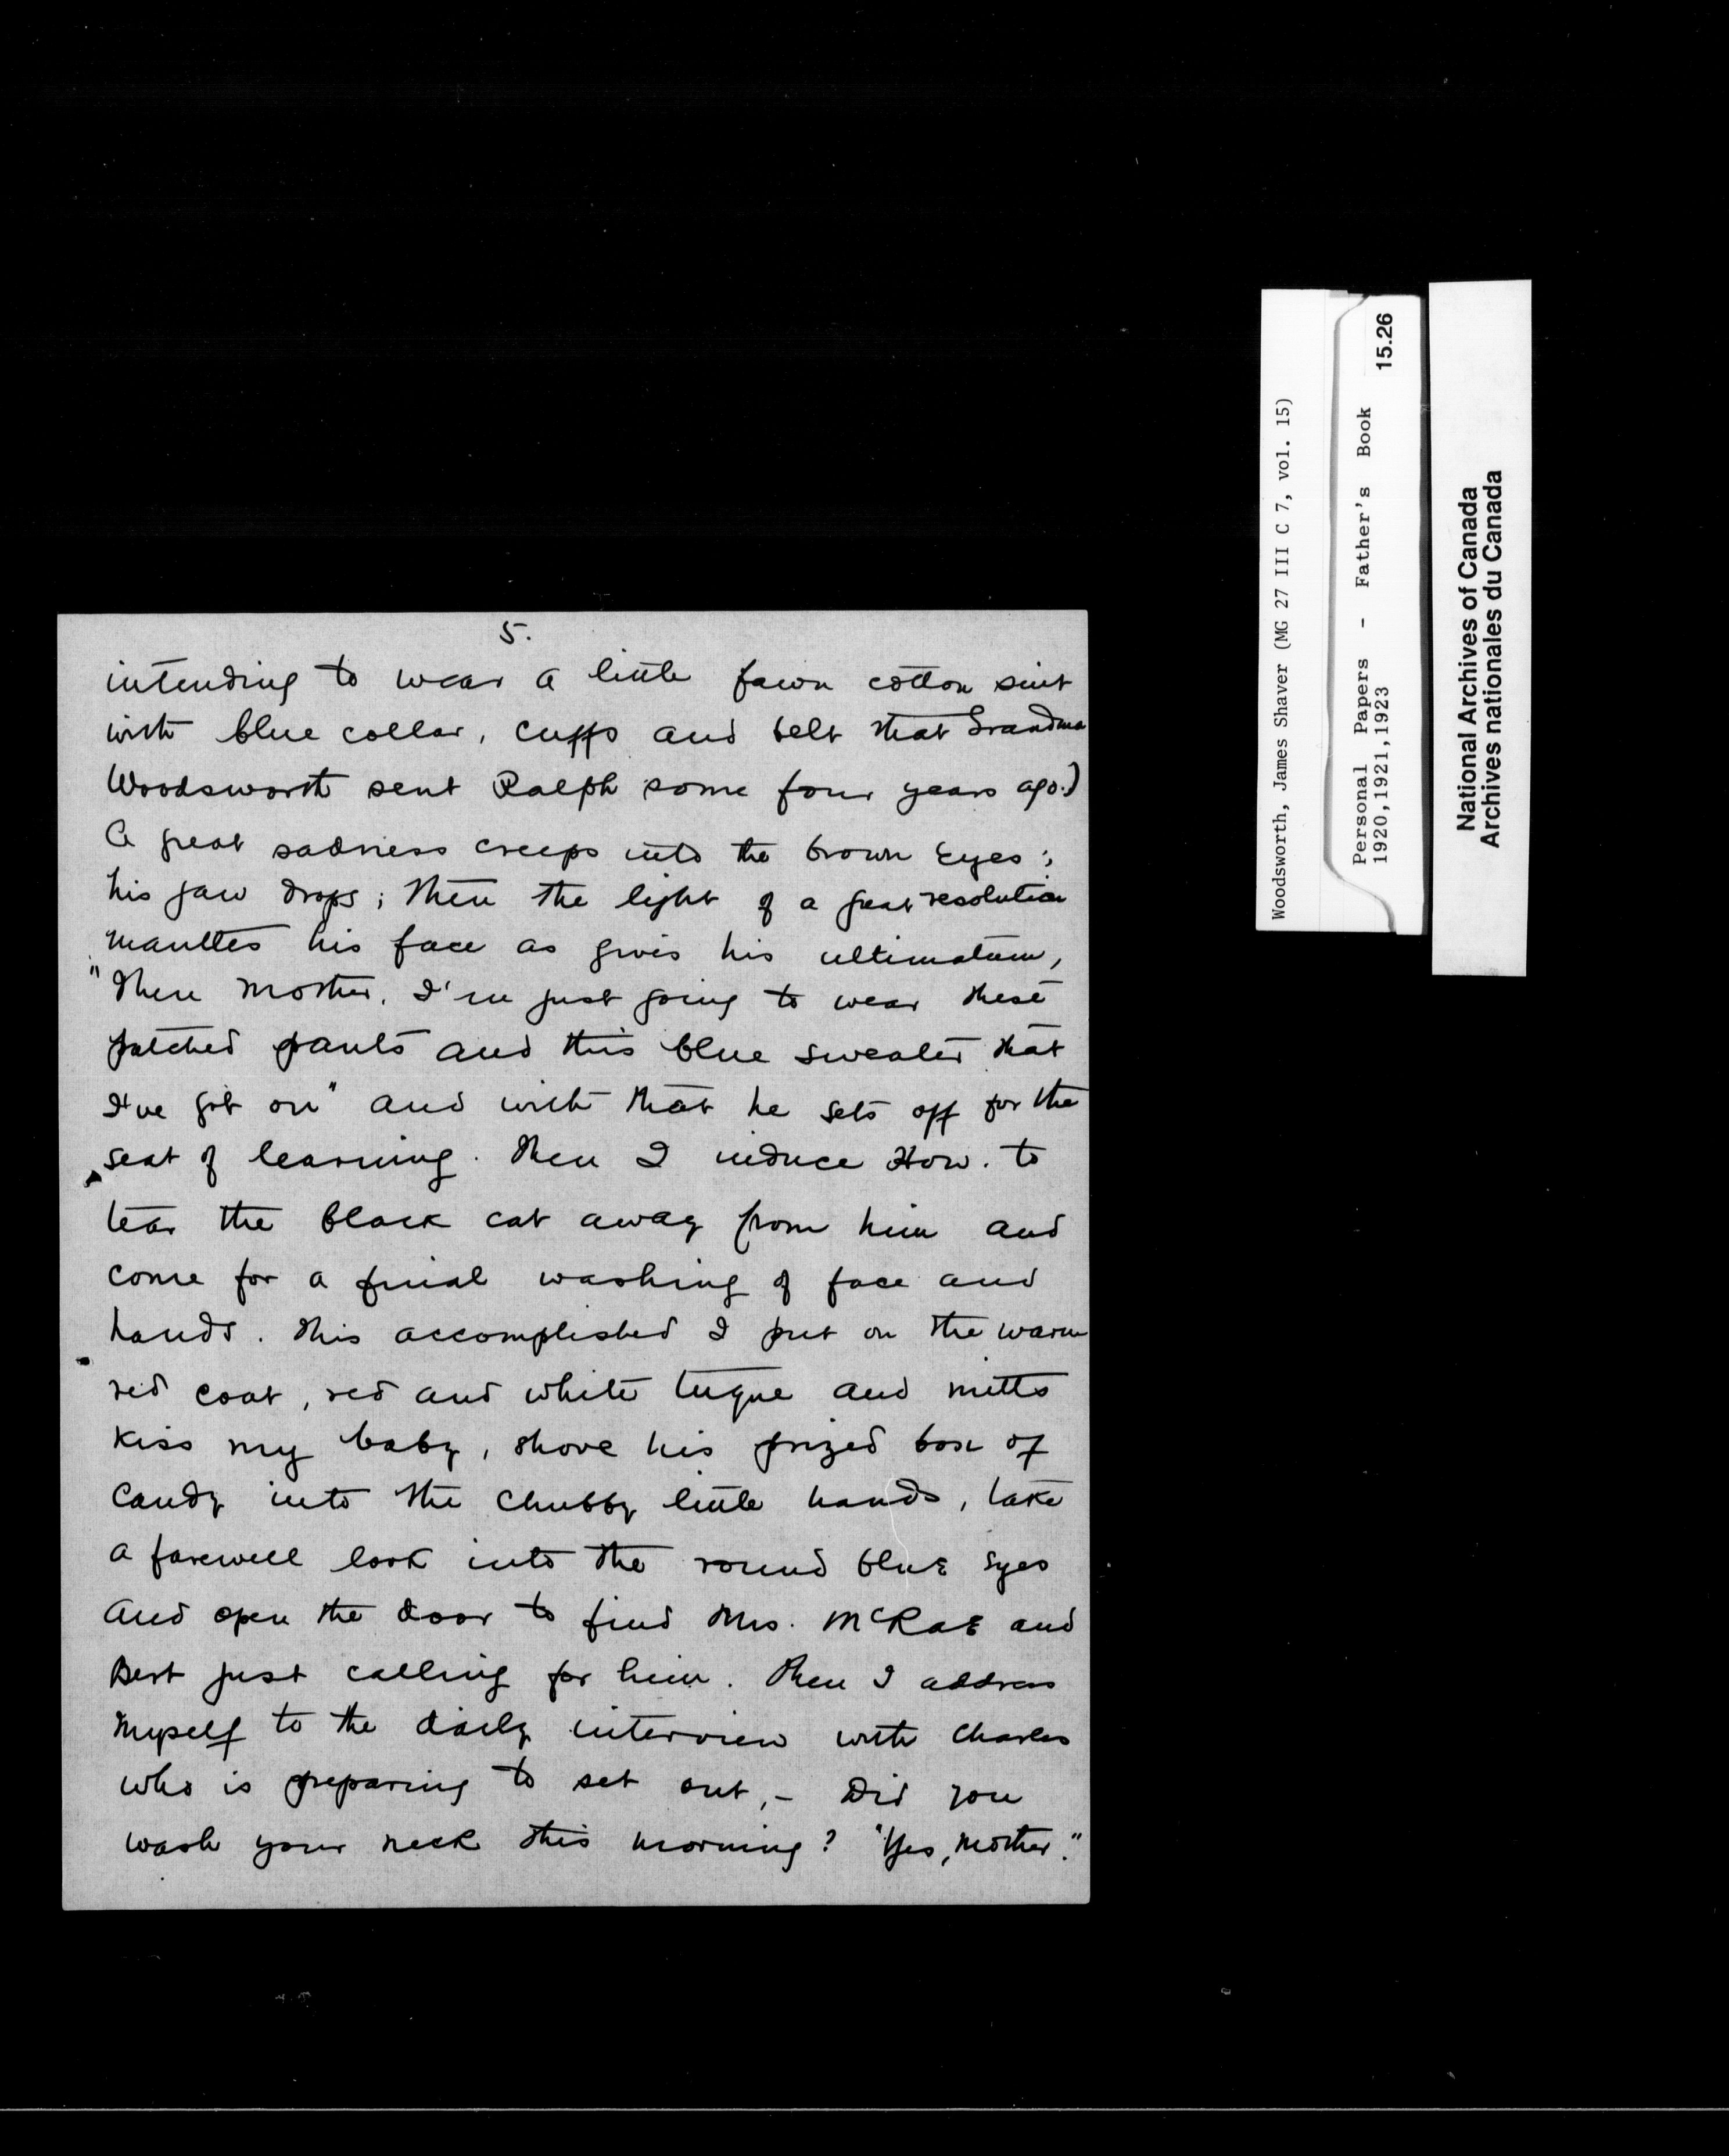 5.
intending to wear a little fawn cotton suit
with blue collar, cuffs and belt that Grandma
Woodsworth sent Ralph some four years ago.)
A great sadness creeps into the brown eyes;
his jaw drops; then the light of a great resolution
mantles his face as gives his ultimatum,
"Then Mother, I'm just going to wear these
patched pants and this blue sweater that
I've got on" and with that he sets off for the
seat of learning. Then I induce How. to
tear the black cat away from him and
come for a final washing of face and
hands. This accomplished I put on the warm
red coat, red and white tuque and mitts
kiss my baby, shove his prized box of
candy into the chubby little hands, take
a farewell look into the round blue eyes
and open the door to find Mrs. McRae and
Bert just calling for him. Then I address
myself to the daily interview with Charles
who is preparing to set out,- Did you
wash your neck this morning? "Yes, Mother."
Woodsworth, James Shaver (MG 27 III C 7, vol. 15)
Personal Papers - Father's Book 15.26
1920,1921,1923
National Archives of Canada
Archives nationales du Canada